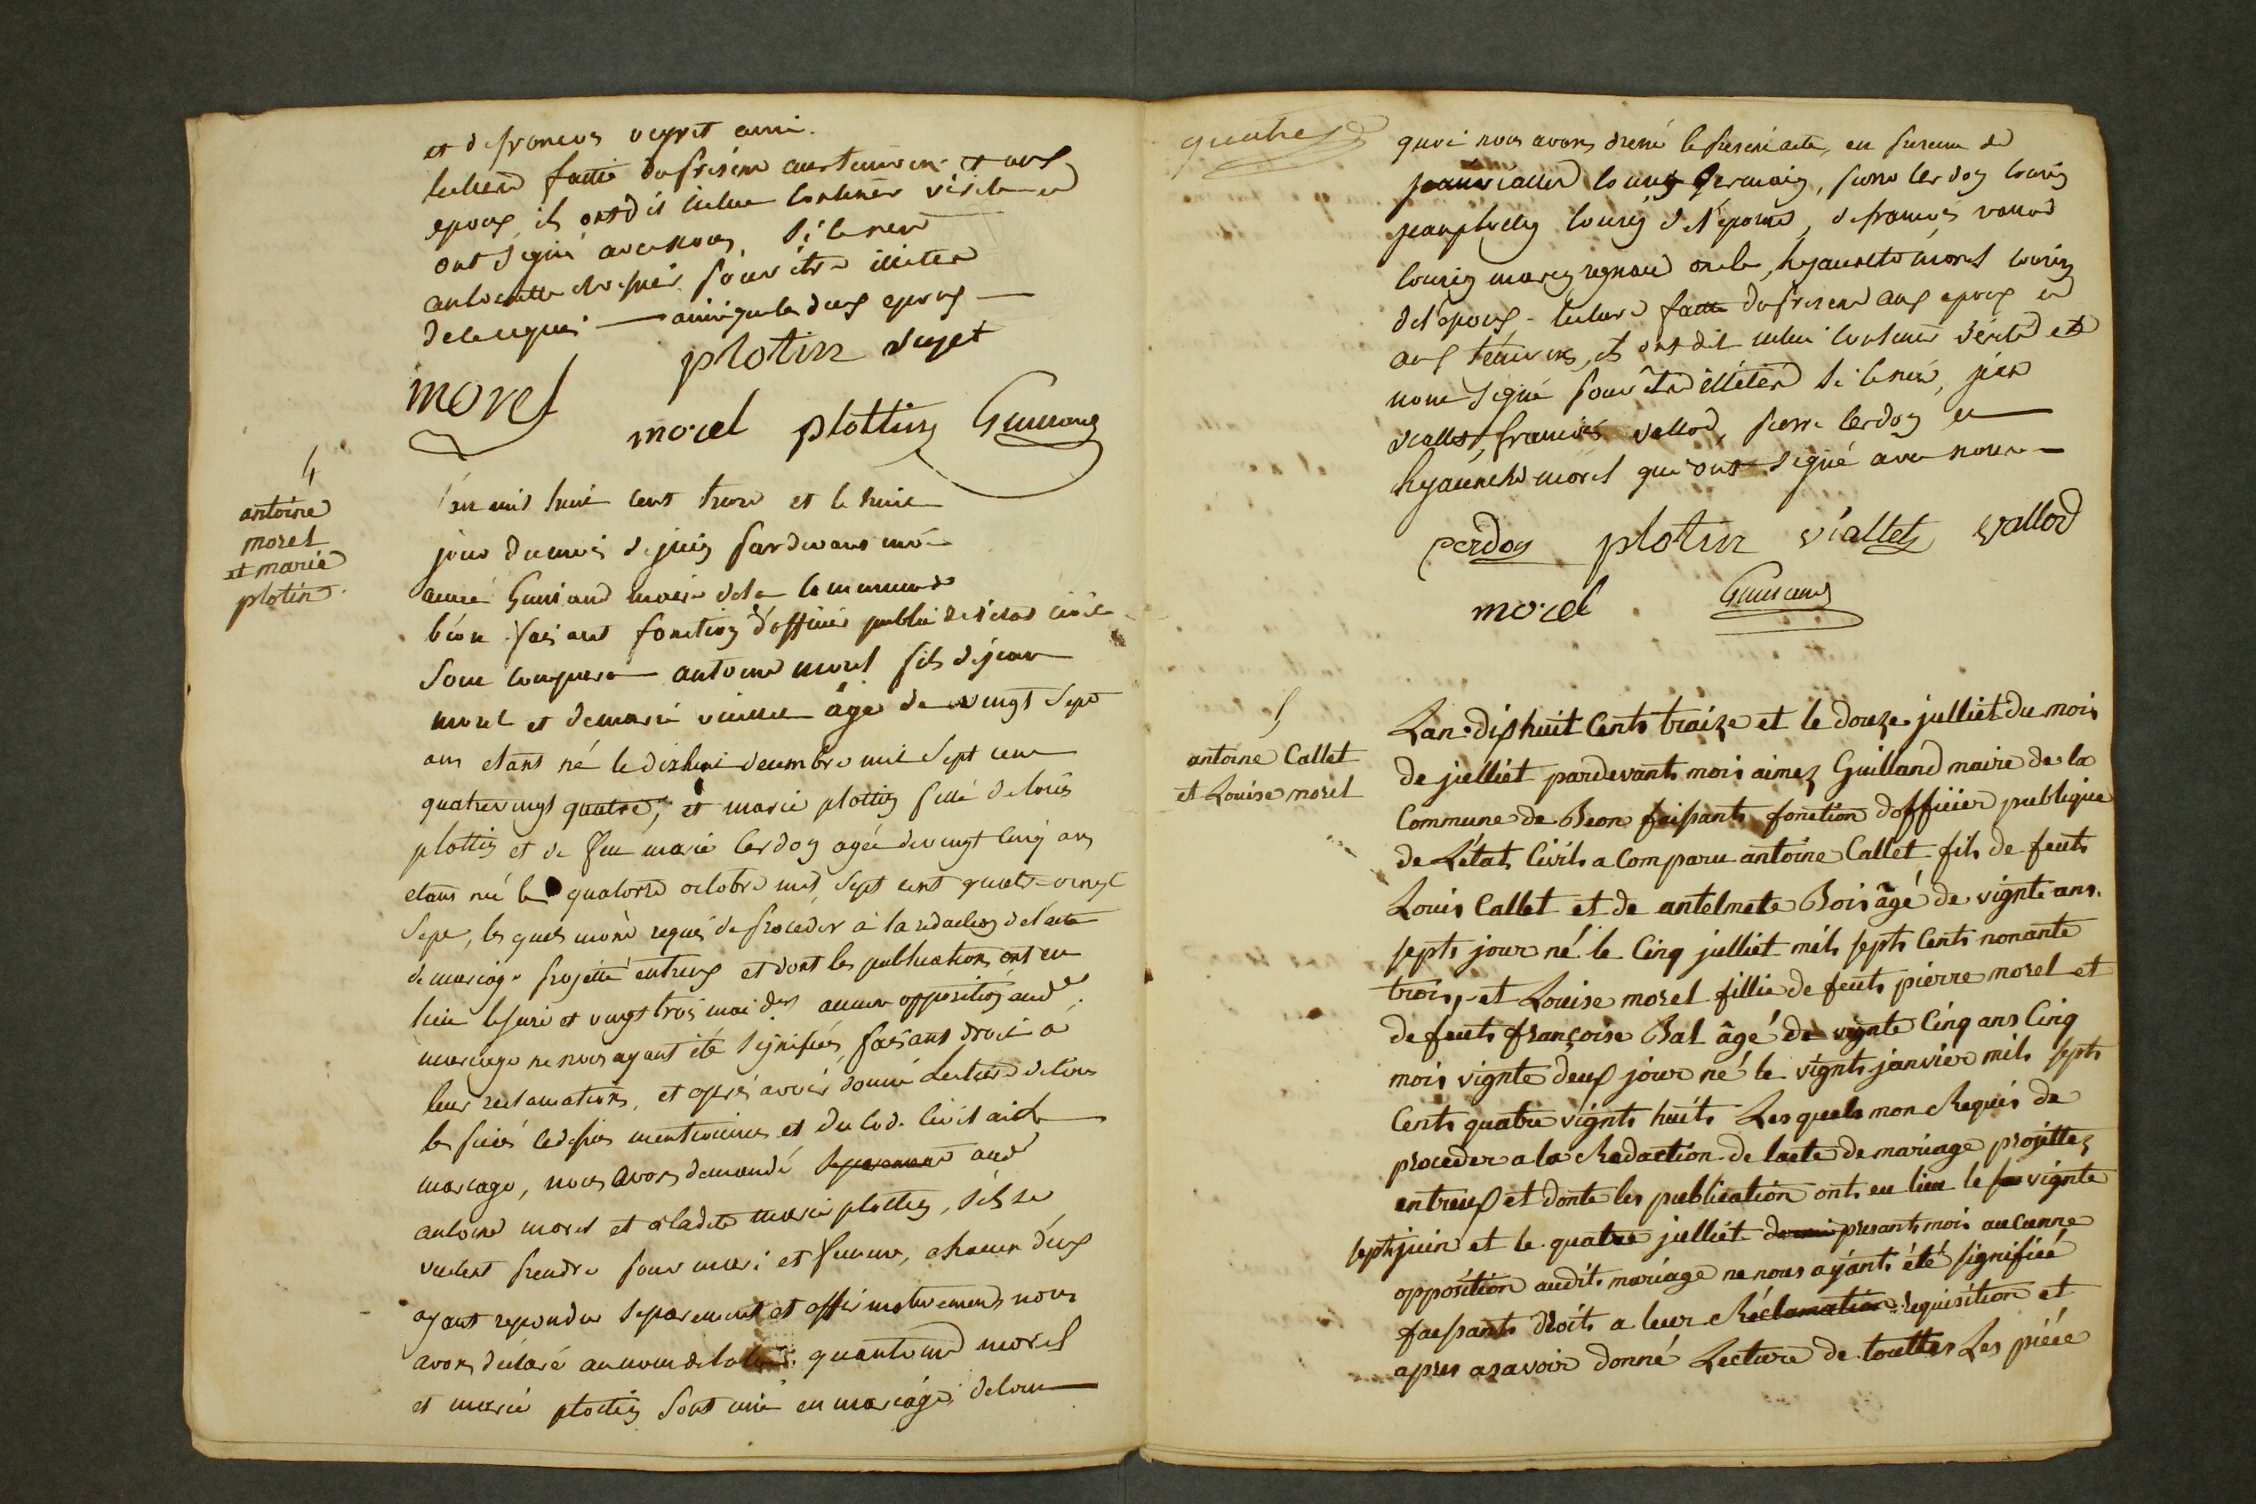 et de francois veyret ami.
lecture faitte du présent aux temoins et aux
epoux ils ont dit icelui contenir vérité et
ont signé avec nous, si ce n'est
pour être illitéré
de ce requis ainsi que les deux epoux
plotin veyet
morel
morel plottin Guilland
4
antoine
morel
et marie
plotin
L'an mil huit cent treze et le huit
jour du mois de juin par devant moi
aimé Guilland maire de la commune de
béon faisant fonction d'officier public de l'état civil
sont comparu antoine morel fils de jean
morel et de marie agé de vingt sept
ans etant né le dixhuit decembre mil sept cent
quatre vingt quatre, et marie plottin fille de louis
plottin et de feu marie Cerdon agée de vingt cinq ans
etant né le quatorze octobre mil sept cent quatre-vingt
sept, les quels mont requis de proceder à la redaction de l'acte
de mariage projetté entreux et dont les publications ont eu
lieu le seize et vingt trois mai der aucune opposition audt
mariage ne nous ayant été signifiée, faisant droit à
leur reclamations, et après avoir donné lecture de toutes
les pièces cedessus mentionnées et du Code Civil au titre du
mariage, nous avons demandé separement audt
antoine morel et à ladite marie plottin, s'ils se
veulent prendre pour mari et femme, chacun d'eux
ayant repondu separement et affirmativement nous
avons declaré au nom de la loi qu'antoine morel
et marie plottin sont uni en mariage, de tout
quatre
quoi nous avons dressé le présent acte, en presence de
jean viallet cousin germain, pierre Cerdon cousin
jean plottin cousin de l'épouse, de francois vallod
cousin oncle, hyacinthe morel cousin
de l'epoux - lecture faitte du présent aux epoux et
aux témoins, ils ont dit icelui contenir vérité et
nont signé pour être illitéré si ce n'est, jean
viallet, francois vallod, pierre Cerdon et
hyacinthe morel qui ont signé avec nous
cerdon plotin viallet vallod
morel Guilland
5
antoine Callet
et Louise morel
Lan dix huit Cents traize et le douze julliet du mois
de julliet pardevants mois aimez Guilland maire de la
Commune de Beon faisants fonction dofficier publique
de Létat Civils a Comparu antoine Callet fils de feuts
Louis Callet et de antelmete Bois âgé de vignte ans
septs jour né le Cinq julliet mils septs Cents nonante
trois, et Louise morel fillie de feuts pierre morel et
de feuts françoise Bal âgé de vignte Cinq ans Cinq
mois vignte deux jour né le vignts janvier mils septs
Cents quatre vignts huits Les quels mon Requis de
proceder a la Redaction de lacte de mariage projettez
entreux et donte les publication onts eu lieu le vignte
septs juin et le quatre julliet presants mois aucunne
opposition audits mariage ne nous ayánts été signifiéé
faisants droits a leur Réclamation requisition et
apres asavoir donné Lecture de touttes Les piéce